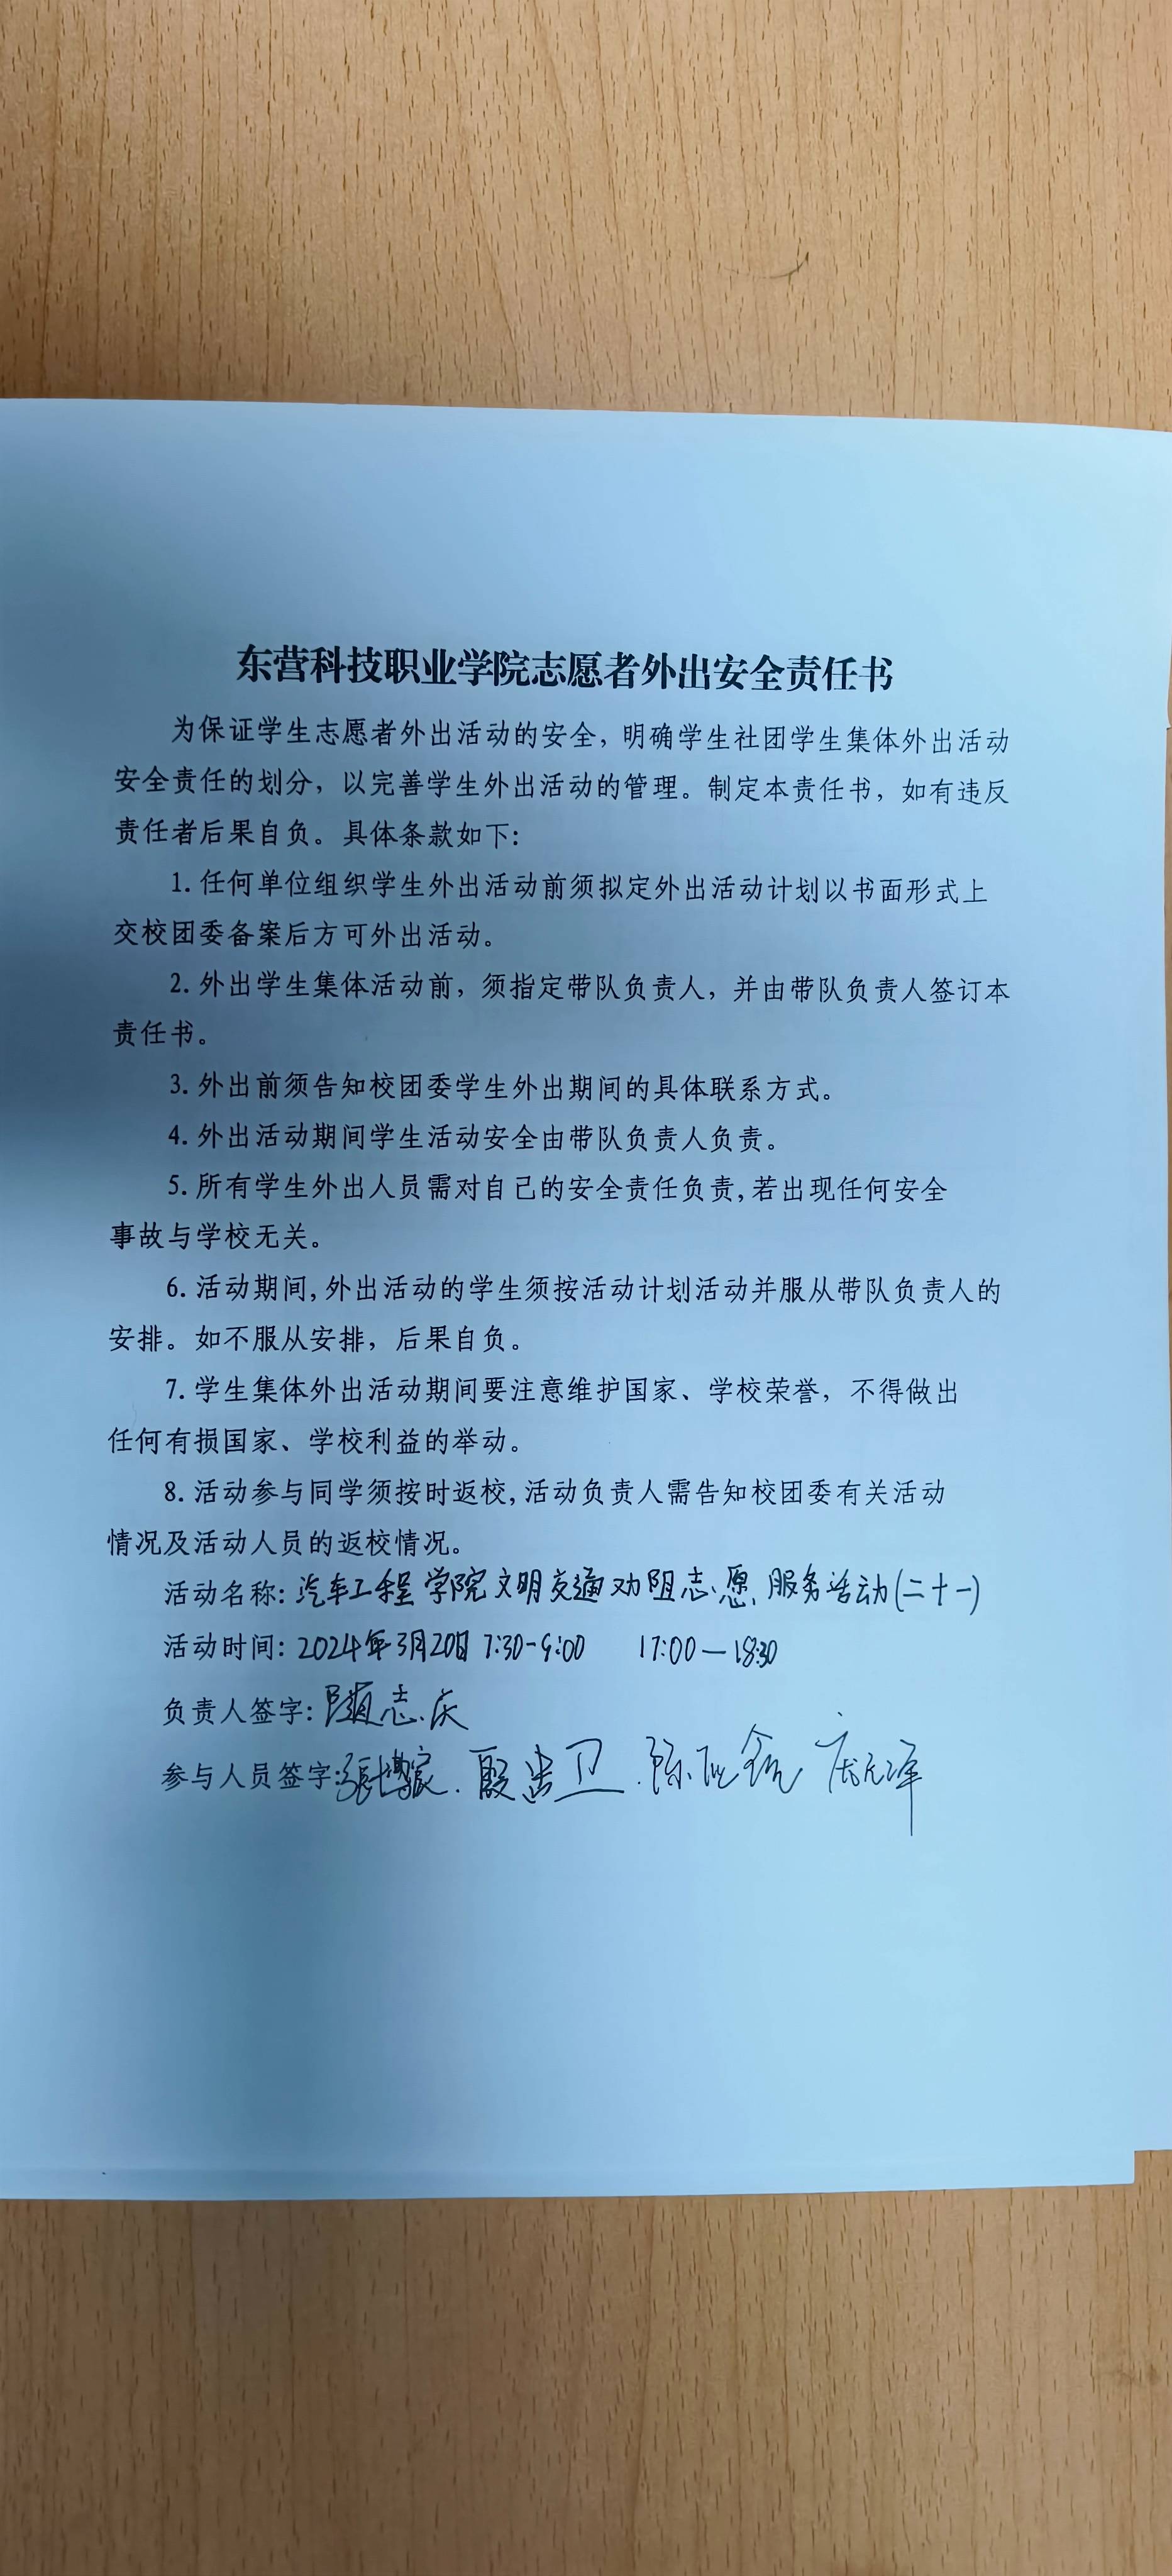 东营科技职业学院志愿者外出安全责任书
为保证学生志愿者外出活动的安全，明确学生社团学生集体外出活动
安全责任的划分，以完善学生外出活动的管理。制定本责任书，如有违反
责任者后果自负。具体条款如下：
1. 任何单位组织学生外出活动前须拟定外出活动计划以书面形式上
交校团委备案后方可外出活动。
2. 外出学生集体活动前，须指定带队负责人，并由带队负责人签订本
责任书。
3. 外出前须告知校团委学生外出期间的具体联系方式。
4. 外出活动期间学生活动安全由带队负责人负责。
5. 所有学生外出人员需对自己的安全责任负责,若出现任何安全
事故与学校无关。
6. 活动期间,外出活动的学生须按活动计划活动并服从带队负责人的
安排。如不服从安排，后果自负。
7. 学生集体外出活动期间要注意维护国家、学校荣誉，不得做出
任何有损国家、学校利益的举动。
8. 活动参与同学须按时返校,活动负责人需告知校团委有关活动
情况及活动人员的返校情况。
活动名称: 汽车工程学院文明交通劝阻志愿服务活动(二十一)
活动时间: 2024年3月20日 7:30-9:00 17:00—18:30
负责人签字: 志庆
参与人员签字: